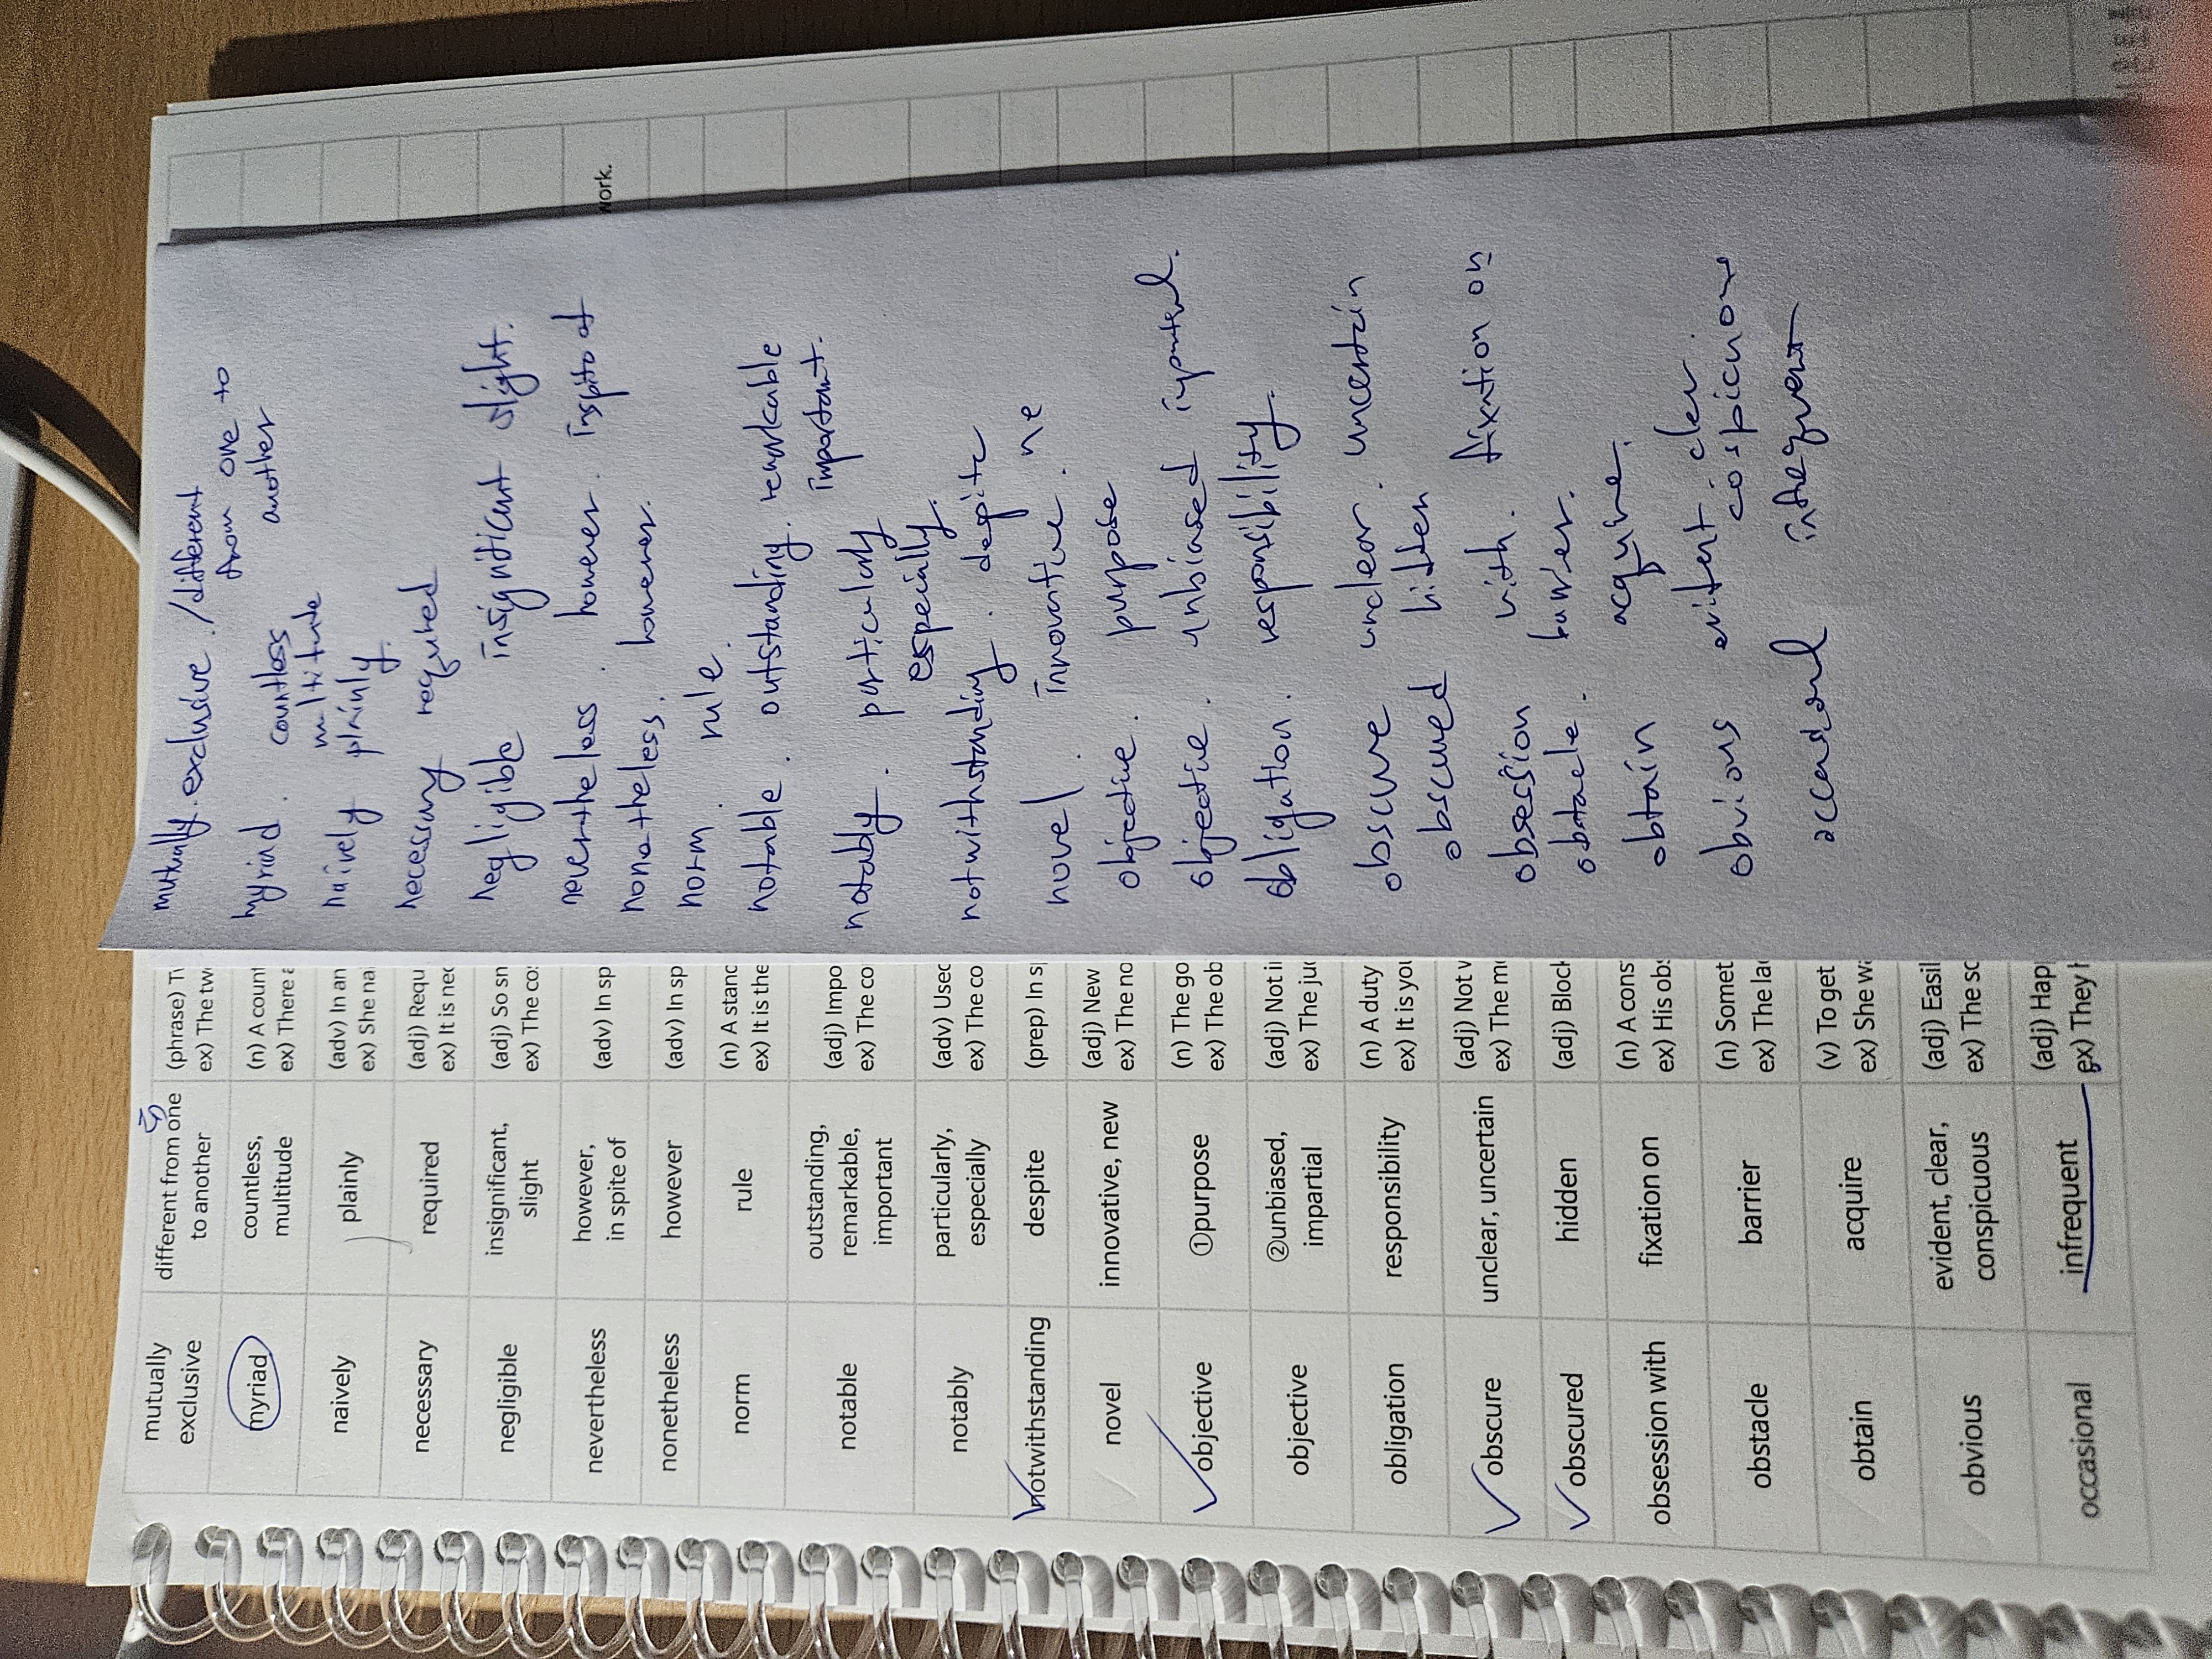 mutually
exclusive
different from one
to another
(phrase)
ex) The
myriad
countless,
multitude
(n) A
ex) There
naively
plainly
(adv) In an
ex) She
necessary
required
(adj)
ex) It is
negligible
insignificant,
slight
(adj) So
ex) The
nevertheless
however,
in spite of
(adv) In
nonetheless
however
(adv) In
norm
rule
(n) A
ex) It is the
notable
outstanding,
remarkable,
important
(adj)
ex) The
notably
particularly,
especially
(adv)
ex) The
notwithstanding
despite
(prep) In
novel
innovative, new
(adj) New
ex) The
objective
①purpose
(n) The
ex) The
objective
②unbiased,
impartial
(adj) Not
ex) The
obligation
responsibility
(n) A duty
ex) It is
obscure
unclear, uncertain
(adj) Not
ex) The
obscured
hidden
(adj)
obsession with
fixation on
(n) A
ex) His
obstacle
barrier
(n)
ex) The
obtain
acquire
(v) To get
ex) She
obvious
evident, clear,
conspicuous
(adj)
ex) The
occasional
infrequent
(adj)
ex) They
mutually exclusive. /different
from one to
another
countless
naively plainly.
necessary required
negligible insignificant slight.
nevertheless. however.
nonetheless. however.
norm rule.
notable. outstanding.
important.
notably. particularly
especially.
notwithstanding. despite
novel. innovative. ne
objective. purpose
objective. unbiased
obligation. responsibility.
obscure unclear. uncertain
obscured hidden
obsession with. fixation on
acquire.
obtain
obvious evident
infrequent
work.